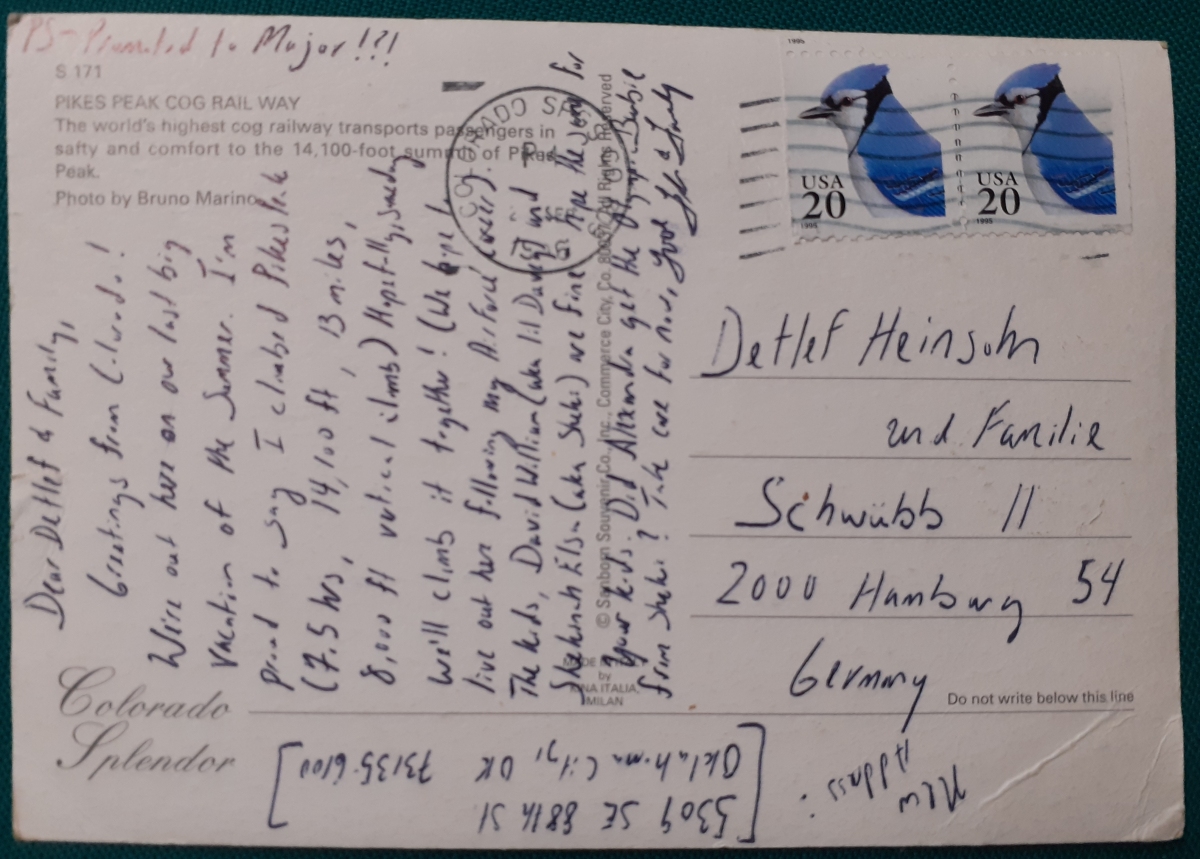 PS- Promoted to Major!!?!
S 171
PIKES PEAK COG RAIL WAY
The world's highest cog railway transports passengers in
safty and comfort to the 14,100-foot summit of Pikes
Peak.
Photo by Bruno Marino
Dear Detlef & Family,
Greetings from Colorado!
We're out here on our last big
vacation of the Summer. I'm
proud to say I climbed Pikes Peak
(7.5 hrs, 14,100 ft, 13 miles,
8,000 ft vertical climb) Hopefully, someday
we'll climb it together! (We hope to
live out here following my Air Force career).
The kids, David William (aka lil Davey) and
Shekinah Elsa (aka Sheki) are fine. Are the
your kids. Did Alexandra get the Barbie
from Sheki? Take care for now,
COLORADO SP
© Sanborn Souvenir Co., Inc., Commerce City, Co. 80022 All Rights Reserved
MADE IN ITALY
by
KINA ITALIA,
MILAN
1995
USA
20
1995
USA
20
1995
Detlef Heinsohn
und Familie
Schwübb 11
2000 Hamburg 54
Germany
Do not write below this line
Colorado
Splendor
New
Address:
[5309 SE 88th St
Oklahoma City, OK 73135-6100]